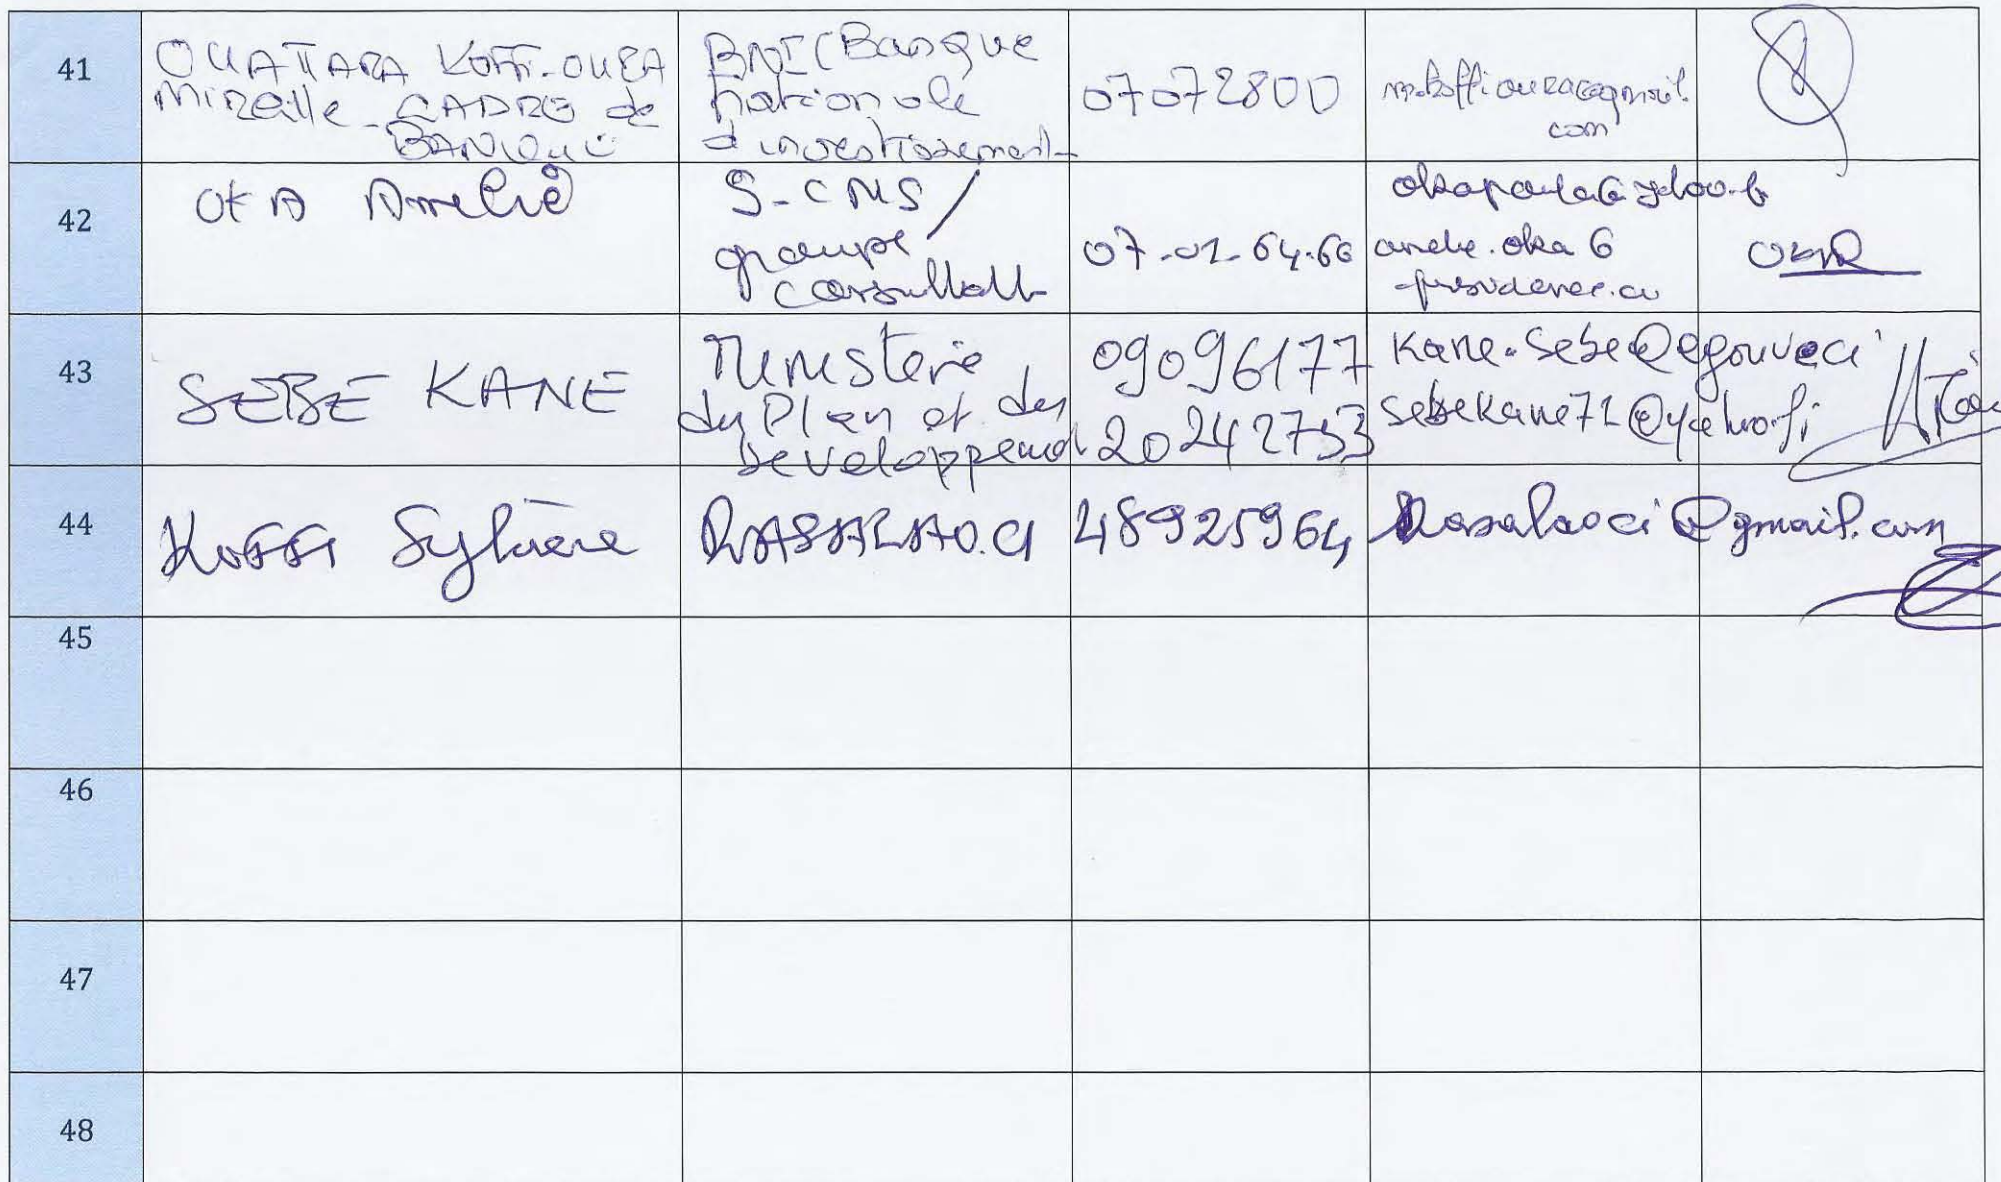 41
OUATTARA KOFFI-OURA
Mireille - CADRE de
BANQUE
BNI (Banque
Nationale
d'investissement
07072800
com
42
OKA Amelie
S-CMS /
groupe
07-01-64-66
OKA
43
SEBE KANE
Ministère
du Plan et du
Developpement
09096177
20242753
Kane.sebe@egouv.ci
sebekane71@yahoo.fr
44
Koffi Sylvère
RASALAO.CI
48925964
Rasalaoci@gmail.com
45
46
47
48